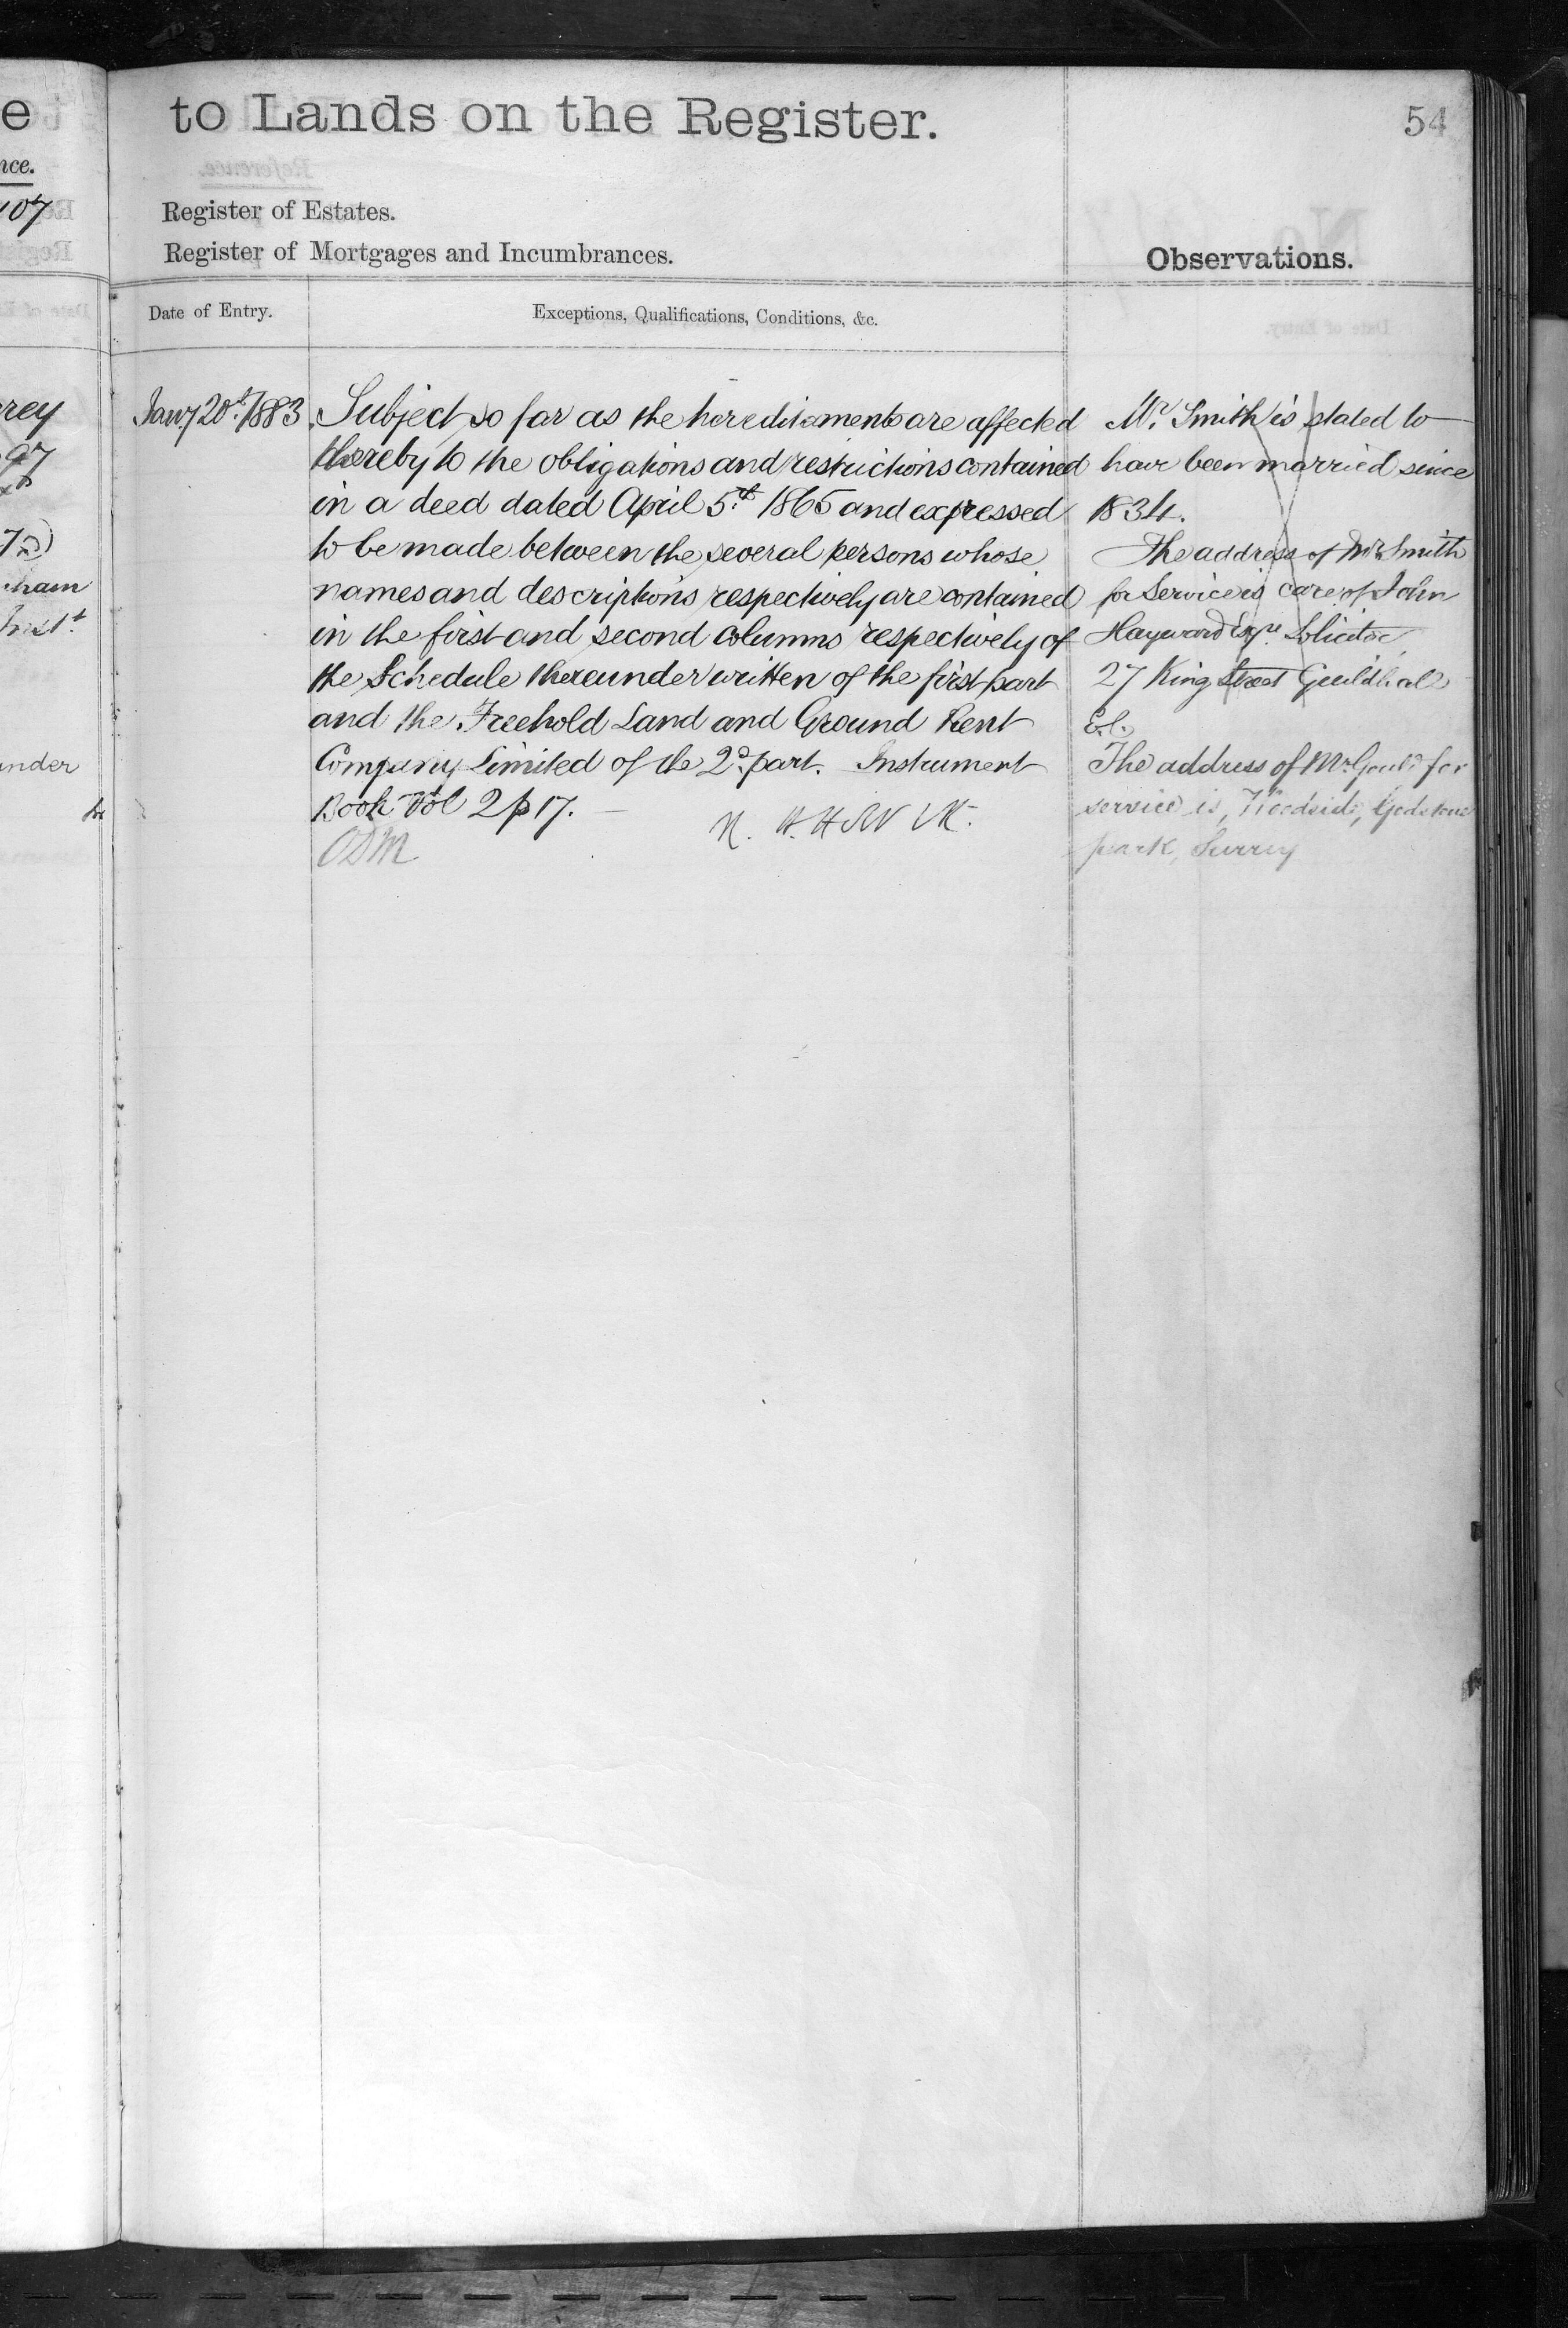 e
to Lands on the Register.
54
nce.
107
Register of Estates.
Register of Mortgages and Incumbrances.
Observations.
Date of Entry.
Exceptions, Qualifications, Conditions, &c.
rrey
97
ham
nder
Jany 20th 1883
Subject so far as the hereditaments are affected
thereby to the obligations and restrictions contained
in a deed dated April 5th 1865 and expressed
to be made between the several persons whose
names and descriptions respectively are contained
in the first and second columns respectively of
the Schedule thereunder written of the first part
and the Freehold Land and Ground Rent
Company Limited of the 2d part. Instrument
Book Vol 2 p 17.
Mr. Smith is stated to
have been married since
1834.
The address of Mr Smith
for Service is care of John
Hayward Esqre Solicitor
27 King Street Guildhall
E.C.
The address of Mr Gould for
service is, Woodside, Godstone
park, Surrey